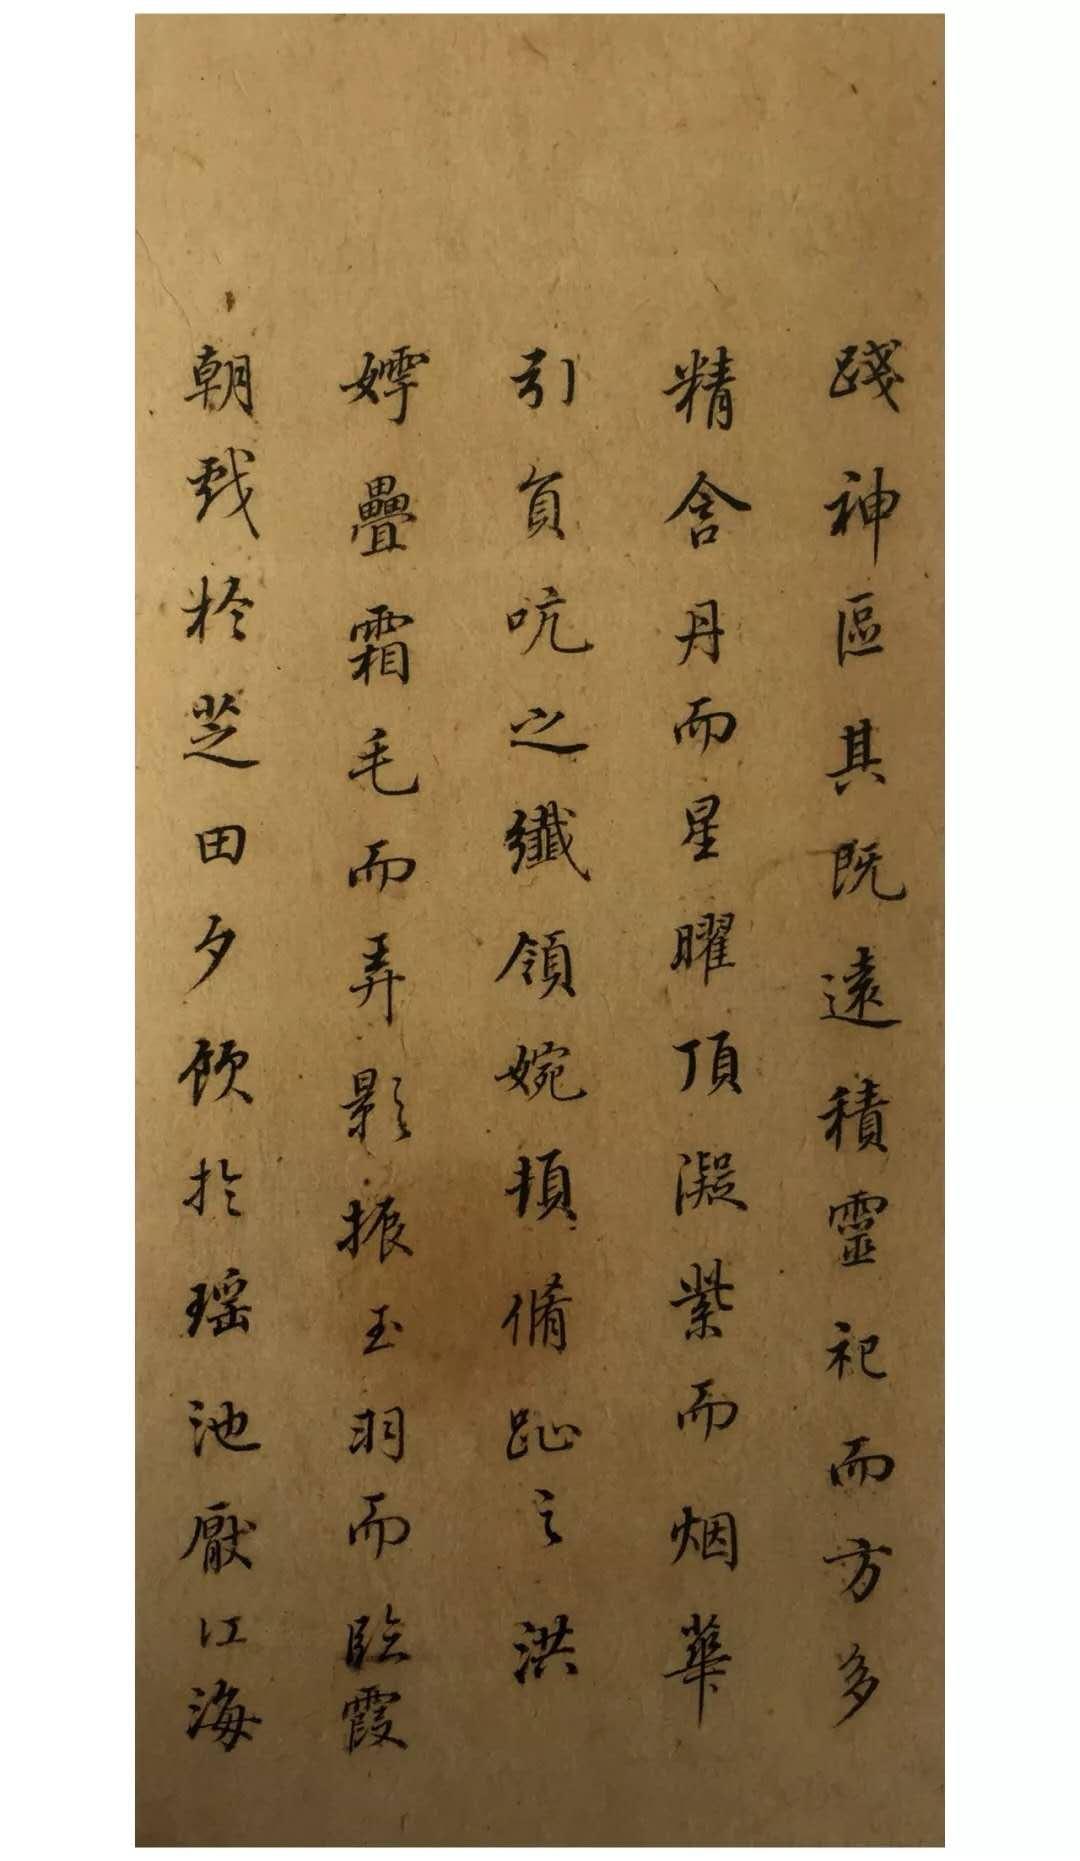 踐神區其既遠積靈祀而方多
精含丹而星曜頂凝紫而烟華
引員吭之纖領婉頓脩趾之洪
嫮疊霜毛而弄影振玉羽而臨霞
朝戲於芝田夕飲於瑶池厭江海